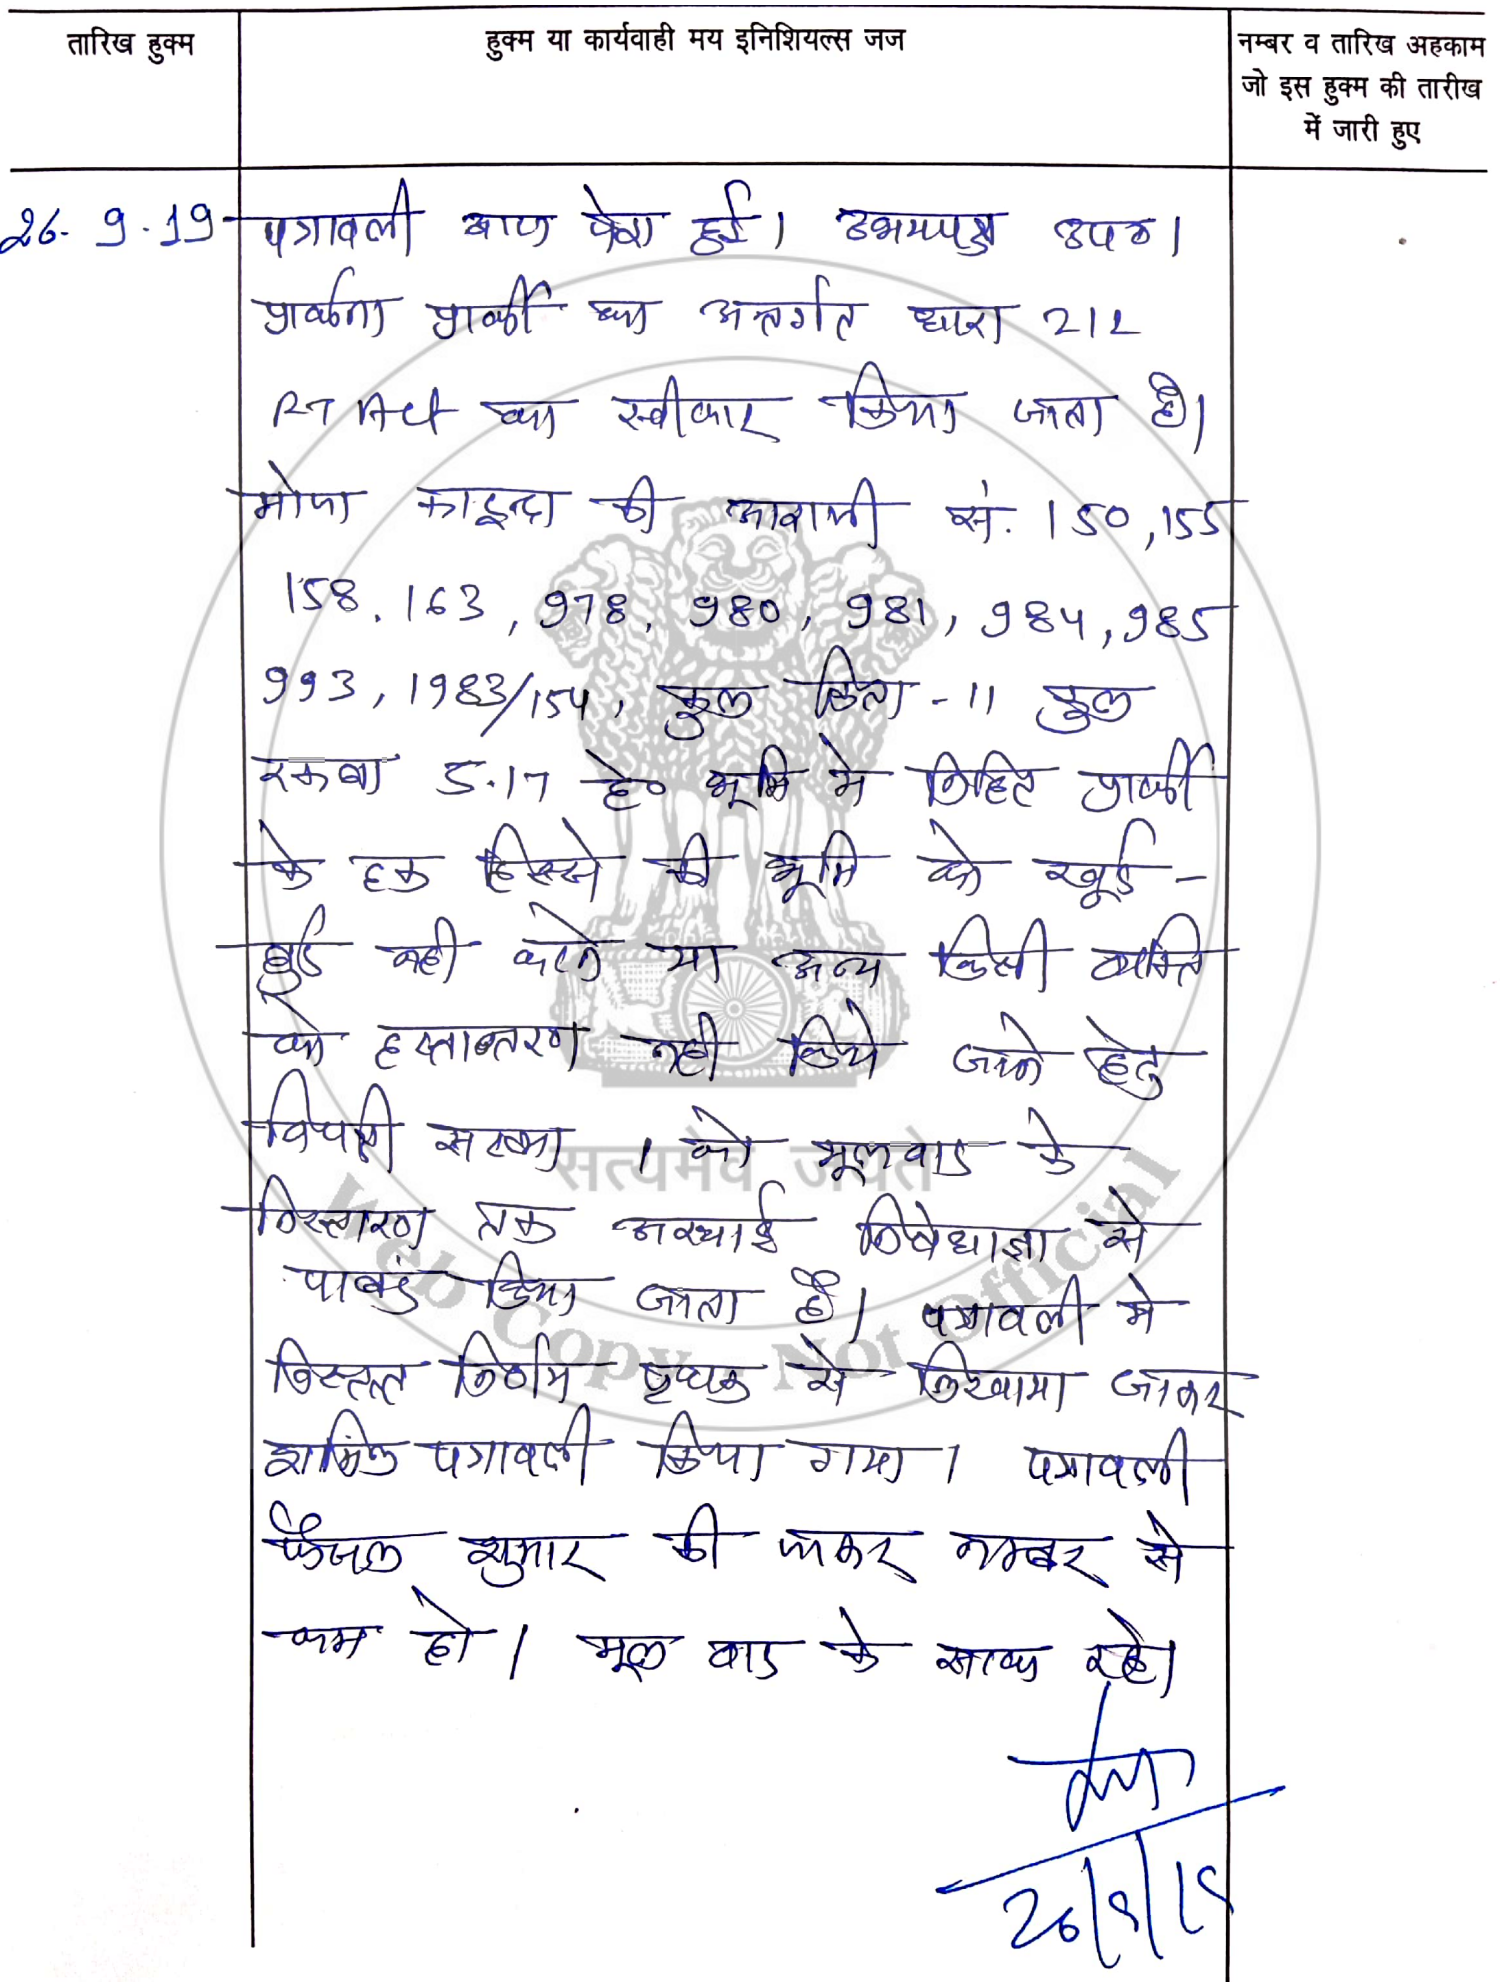 तारिख हुक्म
हुक्म या कार्यवाही मय इनिशियल्स जज
नम्बर व तारिख अहकाम
जो इस हुक्म की तारीख
में जारी हुए
26. 9. 19 पत्रावली आज पेश हुई। उभयपक्ष उप०।
प्रार्थना प्रार्थी का अन्तर्गत धारा 212
RT Act का स्वीकार किया जाता है।
मोजा की आराजी सं. 150, 155
158, 163, 978, 980, 981, 984, 985
993, 1983/154, कुल किता - 11 कुल
रकबा 5.17 हे० भूमि मे निहित प्रार्थी
के हक हिस्से की भूमि को खुर्द -
बुर्द नही करने या अन्य किसी व्यक्ति
को हस्तान्तरण नही किये जाने हेतु
विपक्षी संख्या 1 को मूलवाद के
निस्तारण तक अस्थाई निषेधाज्ञा से
पाबंद किया जाता है। पत्रावली मे
विस्तृत निर्णय पृथक से लिखाया जाकर
शामिल पत्रावली किया गया। पत्रावली
फैसल शुमार की जाकर नम्बर से
कम हो। मूल वाद के साथ रहे।
26/9/19
सत्यमेव जयते
Web Copy - Not Official